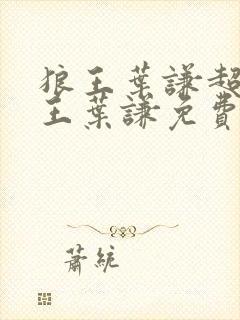 狼王葉謙超
王葉謙免費
蕭統